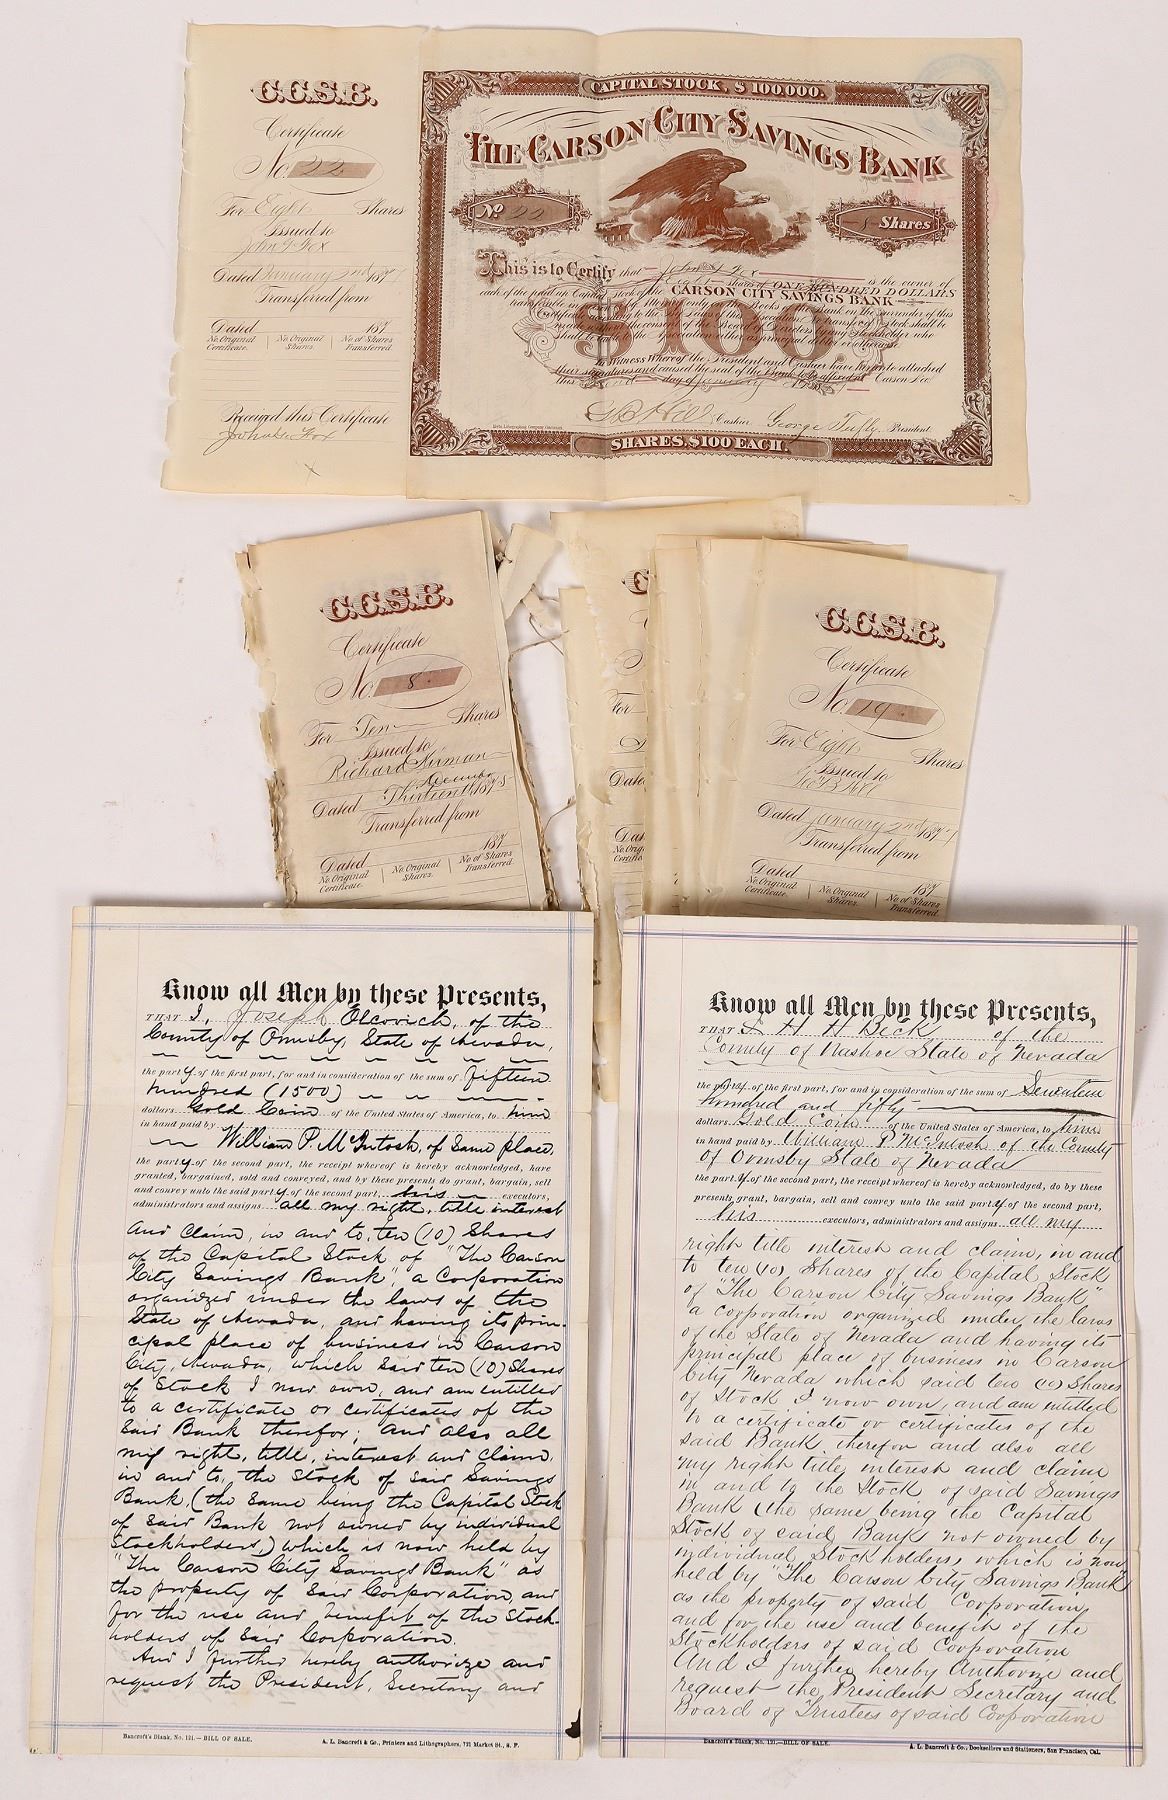 C.C.S.B.
Certificate
No. 22
For Eight Shares
Issued to
John G Fox
Dated January 2nd 1879
Transferred from
Dated 187
No. Original Certificate. No. Original Shares. No of Shares Transferred.
Received this Certificate
John G. Fox
CAPITAL STOCK, $100,000.
THE CARSON CITY SAVINGS BANK
No 22
8 Shares
This is to Certify that John G Fox is the owner of
Eight shares of ONE HUNDRED DOLLARS
each of the paid up Capital stock of the CARSON CITY SAVINGS BANK
$100.
In Witness Whereof the President and Cashier have hereunto attached
their signatures and caused the seal of the Bank to be affixed at Carson
this Second day of January
Cashier George Tufly President
SHARES, $100 EACH.
C.C.S.B.
Certificate
No. 8
For Ten Shares
Issued to
Richard Kirman
December
Dated Thirteenth 1878
Transferred from
Dated 187
No. Original Certificate. No. Original Shares. No of Shares Transferred.
C
For
Dated
C.C.S.B.
Certificate
No. 19
For Eight Shares
Issued to
Dated January 2nd 1879
Transferred from
Dated 187
No. Original Certificate. No. Original Shares. No of Shares Transferred.
Know all Men by these Presents,
THAT I, Joseph Olcovich, of the
County of Ormsby, State of Nevada,
the party of the first part, for and in consideration of the sum of Fifteen
hundred (1500)
dollars Gold Coin of the United States of America, to him
in hand paid by
William P. McIntosh, of same place,
the party of the second part, the receipt whereof is hereby acknowledged, have
granted, bargained, sold and conveyed, and by these presents do grant, bargain, sell
and convey unto the said party of the second part, his executors,
administrators and assigns all my right, title interest
and claim, in and to, ten (10) Shares
of the Capital Stock of "The Carson
City Savings Bank", a Corporation
organized under the laws of the
State of Nevada, and having its prin-
cipal place of business in Carson
City, Nevada, which said ten (10) Shares
of Stock I now own, and am entitled
to a certificate or certificates of the
said Bank therefor; and also all
my right, title, interest and claim,
in and to, the stock of said Savings
Bank, (the same being the Capital Stock
of said Bank not owned by individual
Stockholders,) which is now held by
"The Carson City Savings Bank" as
the property of said Corporation, and
for the use and benefit of the Stock-
holders of said Corporation.
And I further hereby authorize and
request the President, Secretary and
Bancroft's Blank, No. 121.—BILL OF SALE. A. L. Bancroft & Co., Printers and Lithographers, 721 Market St., S. F.
Know all Men by these Presents,
THAT I H H Beck of the
County of Washoe State of Nevada
the party of the first part, for and in consideration of the sum of Seventeen
hundred and fifty
dollars Gold Coin of the United States of America, to him
in hand paid by William P McIntosh of the County
of Ormsby State of Nevada
the party of the second part, the receipt whereof is hereby acknowledged, do by these
presents, grant, bargain, sell and convey unto the said party of the second part,
his executors, administrators and assigns all my
right title interest and claim, in and
to ten (10) Shares of the Capital Stock
of "The Carson City Savings Bank"
a corporation organized under the laws
of the State of Nevada and having its
principal place of business in Carson
City Nevada which said ten (10) Shares
of Stock I now own, and am entitled
to a certificate or certificates of the
said Bank therefor and also all
my right title interest and claim
in and to the Stock of said Savings
Bank (the same being the Capital
Stock of said Bank not owned by
individual Stockholders, which is now
held by "The Carson City Savings Bank"
as the property of said Corporation,
and for the use and benefit of the
Stockholders of said Corporation
And I further hereby Authorize and
request the President Secretary and
Board of Trustees of said Corporation
Bancroft's Blank, No. 121.—BILL OF SALE. A. L. Bancroft & Co., Booksellers and Stationers, San Francisco, Cal.